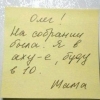 Олег!
На собрании
была. Я в
аху-е, буду
в 10.
Мама